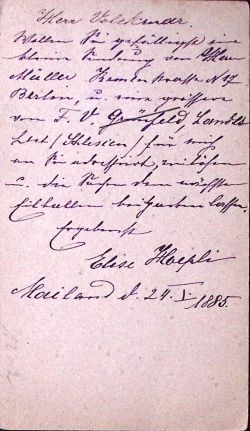 Herr Volckmar.
Wollen Sie gefälligst eine
kleine Sendung von Herr
Müller N 17
Berlin, u. eine grössere
von F. V. Grünfeld, Landes
hut (Schlesien) für mich
an Sie adressirt, einlösen
u. die Sachen dem nächsten
Eilballen beipacken lassen.
Ergebenst
Elise Hoepli
Mailand d. 24. I. 1885.